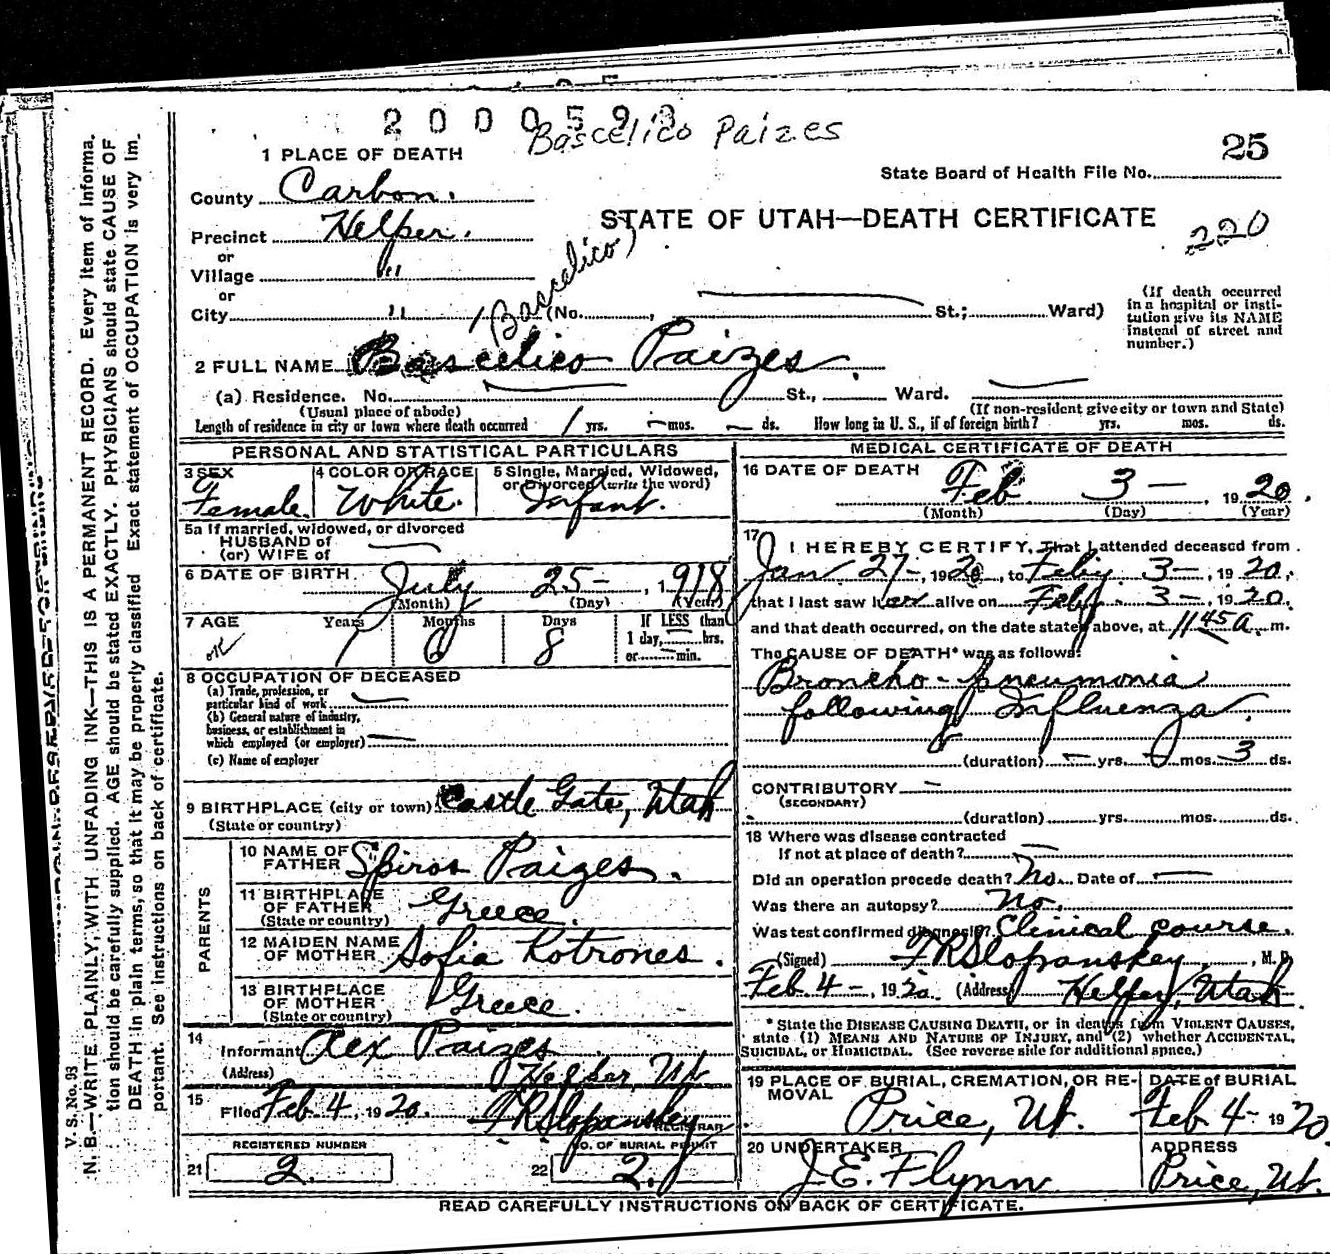 2000593
Bascelico Paizes
25
1 PLACE OF DEATH
State Board of Health File No.
County Carbon.
STATE OF UTAH—DEATH CERTIFICATE
220
Precinct Helper.
or
Village "
or
City " (No. , St.; Ward)
(Bascelico)
(If death occurred in a hospital or insti-
tution give its NAME
instead of street and
number.)
2 FULL NAME Bascelico Paizes.
(a) Residence. No. — St., Ward. —
(Usual place of abode) (If non-resident give city or town and State)
Length of residence in city or town where death occurred 1 yrs. — mos. — ds. How long in U. S., if of foreign birth? yrs. mos. ds.
PERSONAL AND STATISTICAL PARTICULARS
3 SEX
Female.
4 COLOR OR RACE
White.
5 Single, Married, Widowed,
or Divorced (write the word)
Infant.
5a If married, widowed, or divorced
HUSBAND of
(or) WIFE of —
6 DATE OF BIRTH July 25 — , 1918
(Month) (Day) (Year)
7 AGE Years Months Days If LESS than
1 day, hrs.
or min.
OK 1 6 8
8 OCCUPATION OF DECEASED
(a) Trade, profession, or
particular kind of work —
(b) General nature of industry,
business, or establishment in
which employed (or employer) —
(c) Name of employer
9 BIRTHPLACE (city or town) Castle Gate, Utah
(State or country)
PARENTS
10 NAME OF
FATHER Spiros Paizes.
11 BIRTHPLACE
OF FATHER Greece.
(State or country)
12 MAIDEN NAME
OF MOTHER Sofia Kotrones.
13 BIRTHPLACE
OF MOTHER Greece.
(State or country)
14
Informant Alex Paizes
(Address) Helper, Ut
15
Filed Feb. 4, 1920. F R Slopansky
REGISTRAR
REGISTERED NUMBER
21 2.
NO. OF BURIAL PERMIT
22 2.
MEDICAL CERTIFICATE OF DEATH
16 DATE OF DEATH Feb 3 — , 1920.
(Month) (Day) (Year)
17 I HEREBY CERTIFY, That I attended deceased from
Jan 27 —, 1920, to Feby. 3 —, 1920,
that I last saw her alive on Feby. 3 —, 1920.
and that death occurred, on the date stated above, at 11 45 a. m.
The CAUSE OF DEATH* was as follows:
Broncho-pneumonia
following Influenza.
(duration) — yrs. — mos. 3 ds.
CONTRIBUTORY —
(SECONDARY)
(duration) yrs. mos. ds.
18 Where was disease contracted
If not at place of death? —
Did an operation precede death? No. Date of —
Was there an autopsy? No.
Was test confirmed diagnosis? Clinical course.
(Signed) F R Slopanskey, M. D.
Feb. 4 —, 1920. (Address) Helper, Utah
* State the DISEASE CAUSING DEATH, or in deaths from VIOLENT CAUSES,
state (1) MEANS AND NATURE OF INJURY, and (2) whether ACCIDENTAL,
SUICIDAL, or HOMICIDAL. (See reverse side for additional space.)
19 PLACE OF BURIAL, CREMATION, OR RE-
MOVAL Price, Ut.
DATE of BURIAL
Feb 4- 1920
20 UNDERTAKER
J. E. Flynn
ADDRESS
Price, Ut.
READ CAREFULLY INSTRUCTIONS ON BACK OF CERTIFICATE.
V. S. No. 98
N. B.—WRITE PLAINLY, WITH UNFADING INK—THIS IS A PERMANENT RECORD. Every item of informa-
tion should be carefully supplied. AGE should be stated EXACTLY. PHYSICIANS should state CAUSE OF
DEATH in plain terms, so that it may be properly classified. Exact statement of OCCUPATION is very im-
portant. See instructions on back of certificate.